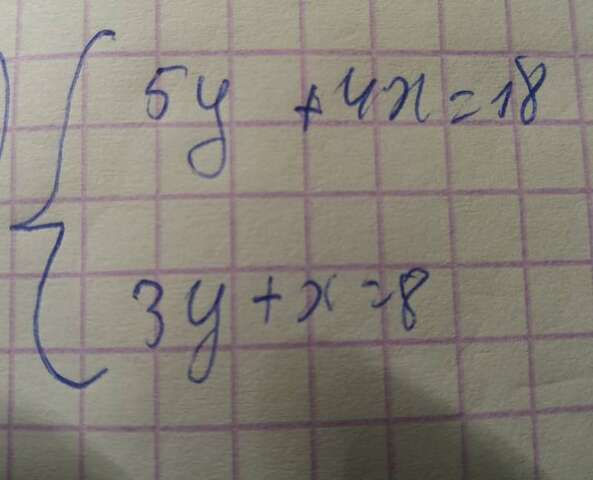 5y + 4x = 18
3y + x = 8